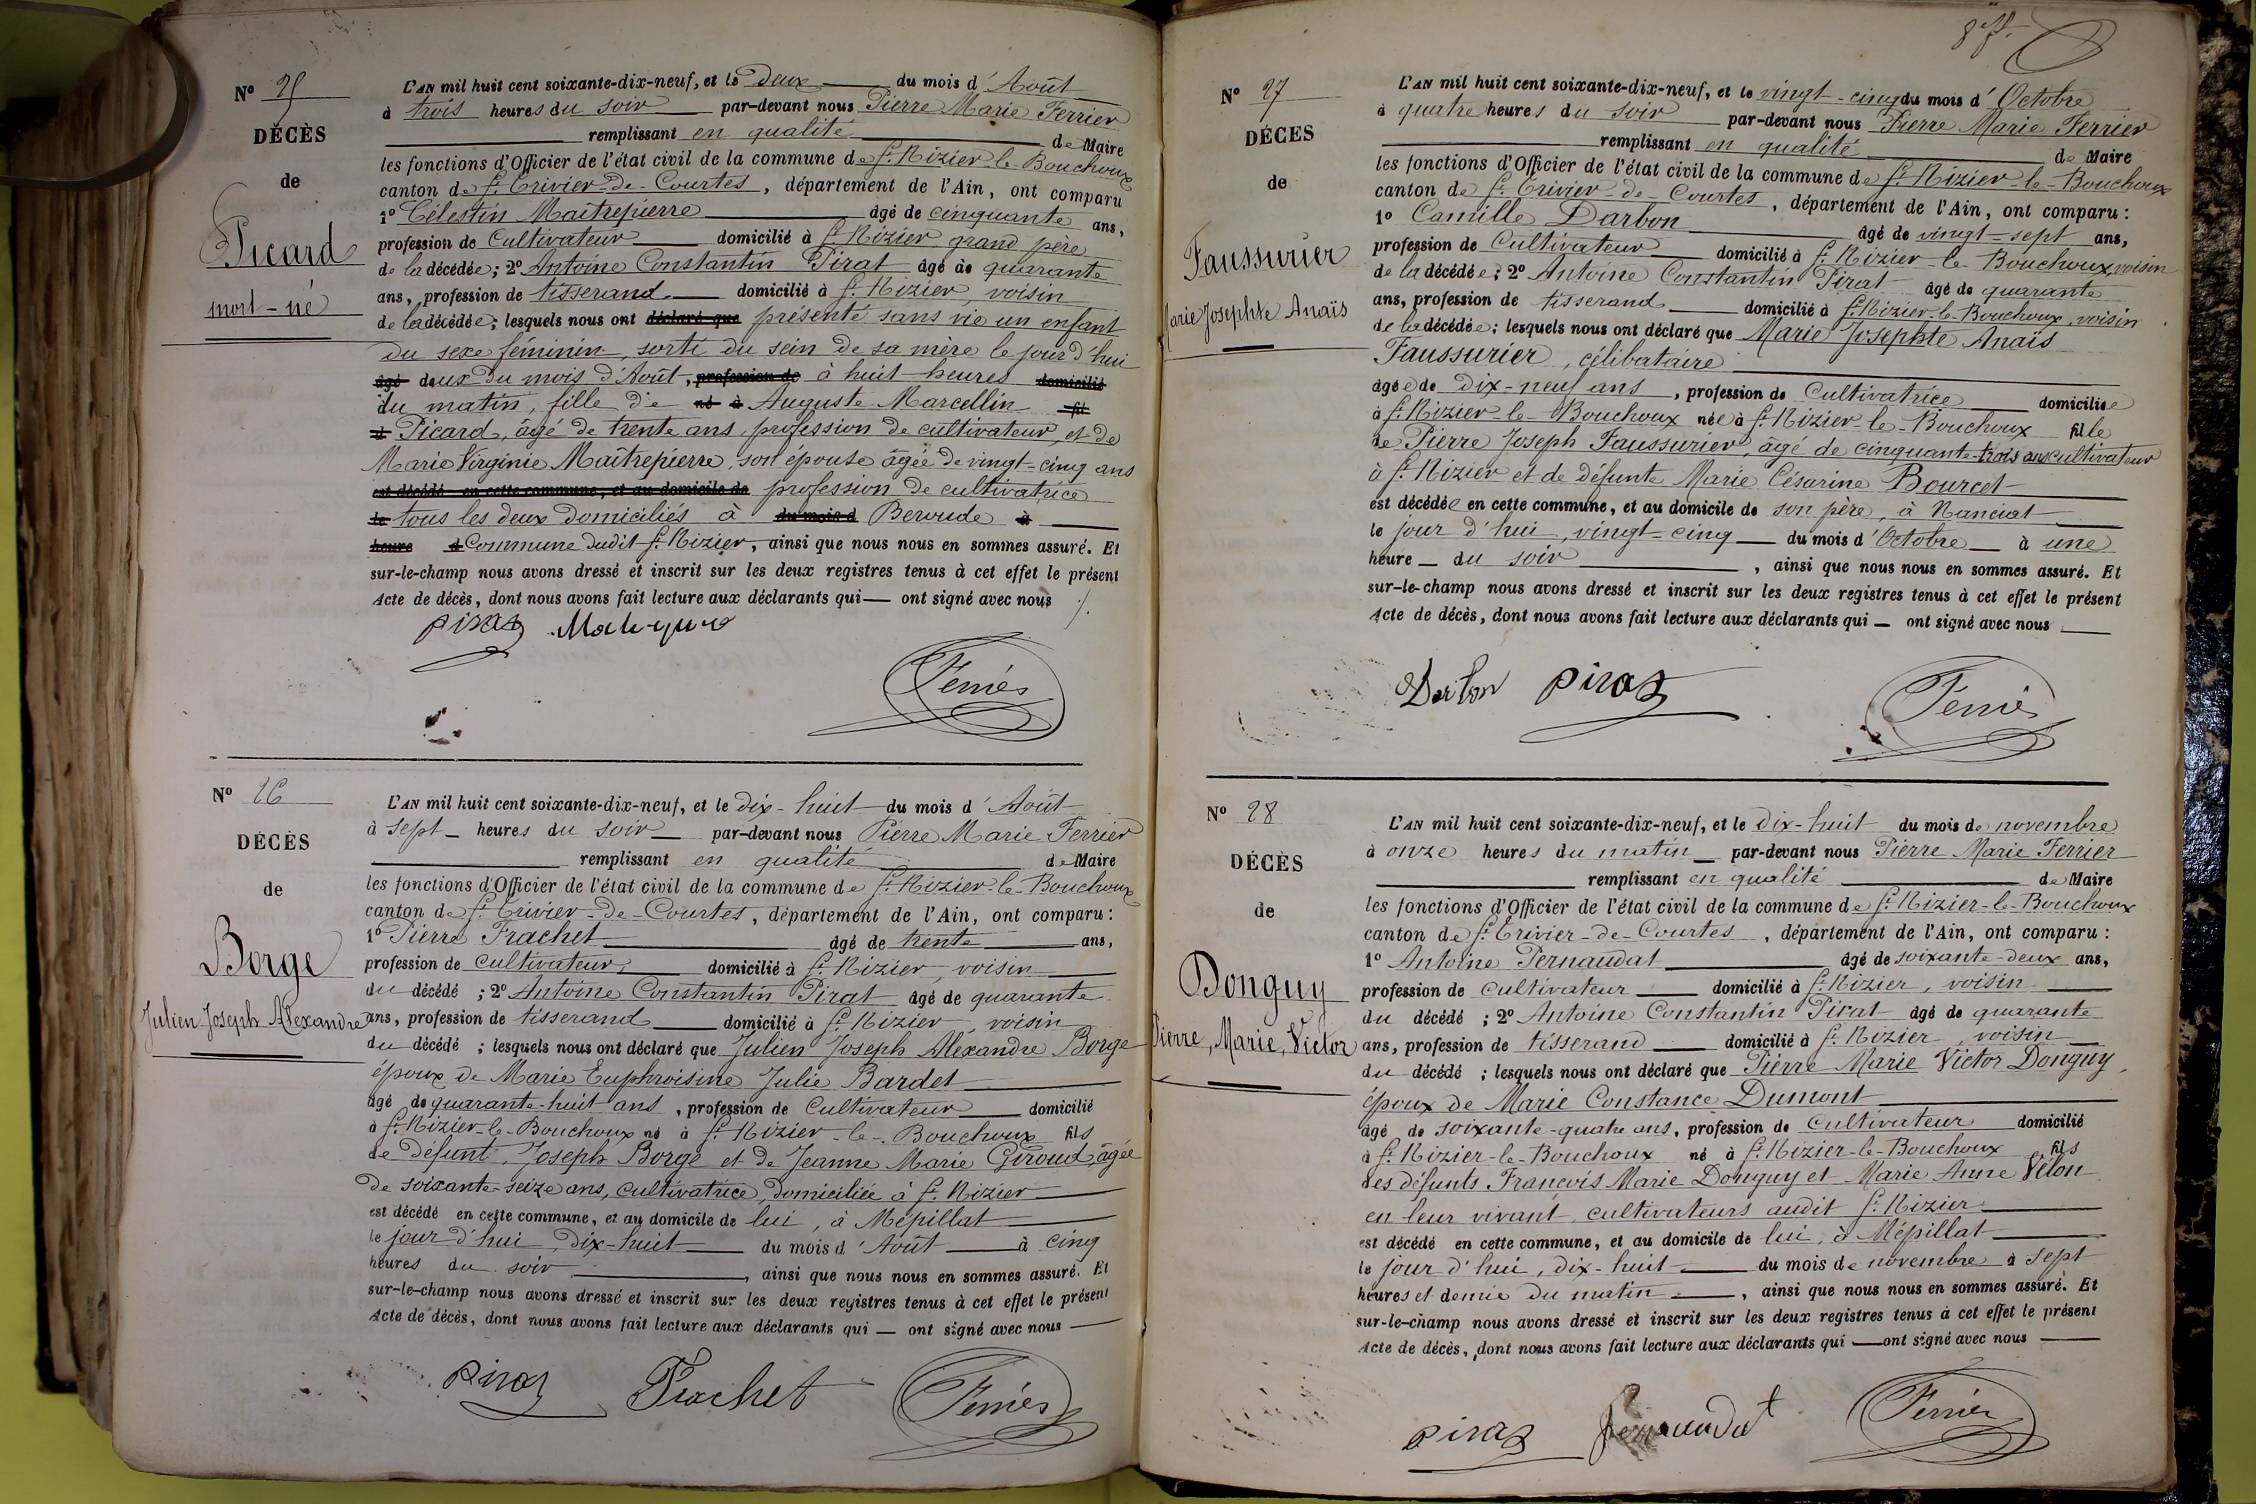 Nº 25
DÉCÈS
de
Picard
mort-né
L'AN mil huit cent soixante-dix-neuf, et le deux du mois d'Août
à trois heures du soir par-devant nous Pierre Marie Ferrier
remplissant en qualité de Maire
les fonctions d'Officier de l'état civil de la commune de St. Nizier-le-Bouchoux
canton de St. Trivier-de-Courtes, département de l'Ain, ont comparu
1º Célestin Maîtrepierre âgé de cinquante ans,
profession de Cultivateur domicilié à St. Nizier grand père
de la décédée; 2º Antoine Constantin Pirat âgé de quarante
ans, profession de tisserand domicilié à St. Nizier, voisin
de la décédée; lesquels nous ont déclaré que présenté sans vie un enfant
du sexe féminin, sorti du sein de sa mère le jour d'hui
âgé deux du mois d'Août, profession de à huit heures domicilié
du matin, fille de né à Auguste Marcellin fil
d Picard, âgé de trente ans, profession de cultivateur, et de
Marie Virginie Maîtrepierre, son épouse âgée de vingt-cinq ans
est décédé en cette commune, et au domicile de profession de cultivatrice
le tous les deux domiciliés à du mois d Beroude à
heure d Commune dudit St. Nizier, ainsi que nous nous en sommes assuré. Et
sur-le-champ nous avons dressé et inscrit sur les deux registres tenus à cet effet le présent
Acte de décès, dont nous avons fait lecture aux déclarants qui — ont signé avec nous ./.
Pirat
Ferrier
Nº 26
DÉCÈS
de
Borge
Julien Joseph Alexandre
L'AN mil huit cent soixante-dix-neuf, et le dix-huit du mois d'Août
à sept heures du soir par-devant nous Pierre Marie Ferrier
remplissant en qualité de Maire
les fonctions d'Officier de l'état civil de la commune de St. Nizier-le-Bouchoux
canton de St. Trivier-de-Courtes, département de l'Ain, ont comparu:
1º Pierre Frachet âgé de trente ans,
profession de cultivateur, domicilié à St. Nizier, voisin
du décédé; 2º Antoine Constantin Pirat âgé de quarante
ans, profession de tisserand domicilié à St. Nizier, voisin
du décédé; lesquels nous ont déclaré que Julien Joseph Alexandre Borge
époux de Marie Euphroisine Julie Bardet
âgé de quarante-huit ans, profession de Cultivateur domicilié
à St. Nizier-le-Bouchoux né à St. Nizier-le-Bouchoux fils
de défunt Joseph Borge et de Jeanne Marie Giroud, âgée
de soixante-seize ans, cultivatrice, domiciliée à St. Nizier
est décédé en cette commune, et au domicile de lui, à Mépillat
le jour d'hui, dix-huit du mois d'Août à cinq
heures du soir, ainsi que nous nous en sommes assuré. Et
sur-le-champ nous avons dressé et inscrit sur les deux registres tenus à cet effet le présent
Acte de décès, dont nous avons fait lecture aux déclarants qui — ont signé avec nous
Pirat Frachet Ferrier
Nº 27
DÉCES
de
Faussurier
Marie Josephte Anaïs
L'AN mil huit cent soixante-dix-neuf, et le vingt-cinq du mois d'Octobre
à quatre heures du soir par-devant nous Pierre Marie Ferrier
remplissant en qualité de Maire
les fonctions d'Officier de l'état civil de la commune de St. Nizier-le-Bouchoux
canton de St. Trivier-de-Courtes, département de l'Ain, ont comparu:
1º Camille Darbon âgé de vingt-sept ans,
profession de Cultivateur domicilié à St. Nizier-le-Bouchoux, voisin
de la décédée; 2º Antoine Constantin Pirat âgé de quarante
ans, profession de tisserand domicilié à St. Nizier-le-Bouchoux, voisin
de la décédée; lesquels nous ont déclaré que Marie Josephte Anaïs
Faussurier, célibataire
âgée de dix-neuf ans, profession de Cultivatrice domiciliée
à St. Nizier-le-Bouchoux née à St. Nizier-le-Bouchoux fille
de Pierre Joseph Faussurier, âgé de cinquante-trois ans cultivateur
à St. Nizier et de défunte Marie Césarine Bourcet
est décédée en cette commune, et au domicile de son père, à Nanciat
le jour d'hui, vingt-cinq du mois d'Octobre à une
heure du soir, ainsi que nous nous en sommes assuré. Et
sur-le-champ nous avons dressé et inscrit sur les deux registres tenus à cet effet le présent
Acte de décès, dont nous avons fait lecture aux déclarants qui — ont signé avec nous
Darbon Pirat Ferrier
Nº 28
DÉCÈS
de
Donguy
Pierre, Marie, Victor
L'AN mil huit cent soixante-dix-neuf, et le dix-huit du mois de novembre
à onze heures du matin par-devant nous Pierre Marie Ferrier
remplissant en qualité de Maire
les fonctions d'Officier de l'état civil de la commune de St. Nizier-le-Bouchoux
canton de St. Trivier-de-Courtes, département de l'Ain, ont comparu:
1º Antoine Pernaudat âgé de soixante-deux ans,
profession de cultivateur domicilié à St. Nizier, voisin
du décédé; 2º Antoine Constantin Pirat âgé de quarante
ans, profession de tisserand domicilié à St. Nizier, voisin
du décédé; lesquels nous ont déclaré que Pierre Marie Victor Donguy,
époux de Marie Constance Dumont
âgé de soixante-quatre ans, profession de Cultivateur domicilié
à St. Nizier-le-Bouchoux né à St. Nizier-le-Bouchoux fils
des défunts François Marie Donguy et Marie Anne Vélon
en leur vivant, cultivateurs audit St. Nizier
est décédé en cette commune, et au domicile de lui, à Mépillat
le jour d'hui, dix-huit du mois de novembre à sept
heures et demie du matin, ainsi que nous nous en sommes assuré. Et
sur-le-champ nous avons dressé et inscrit sur les deux registres tenus à cet effet le présent
Acte de décès, dont nous avons fait lecture aux déclarants qui — ont signé avec nous
Pirat Pernaudat Ferrier